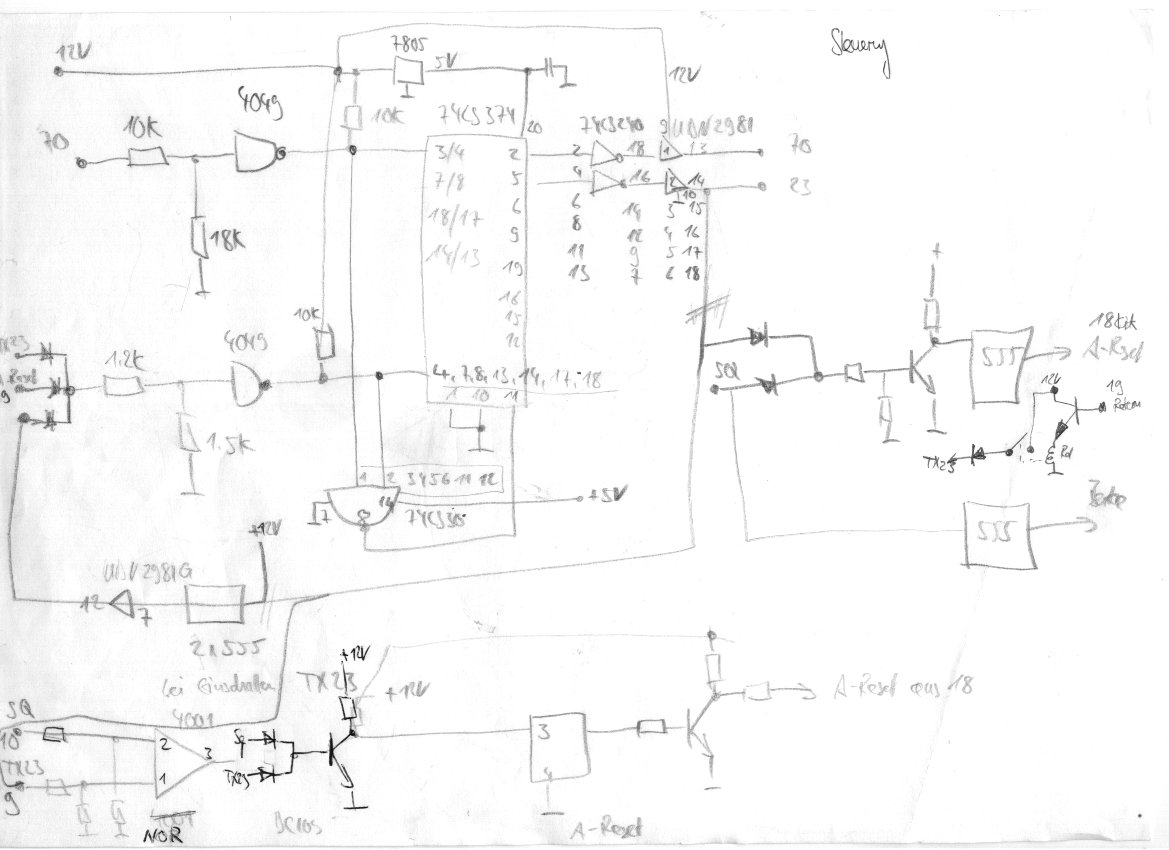 12V
7805
5V
12V
70
10K
4049
10K
74LS374
20
74LS240
9 UDN2981
3/4
2
2
18
1
13
70
7/8
5
4
16
2
14
23
10
18/17
6
6
14
3
15
18K
9
8
12
4
16
14/13
19
11
9
5
17
16
13
7
6
18
15
12
10K
4049
TX23
1.2K
A-Reset
9
1.5K
4, 7, 8, 13, 14, 17, 18
1
10
11
1
2
3 4 5 6 11 12
7
14
8
+5V
+12V
UDN2981G
12
7
2x555
bei Einschalten
+
SQ
555
A-Reset
12V
19
TX23
Rel
555
SQ
10
TX23
9
4001
2
1
3
NOR
TX23
+12V
TX23
+12V
3
4
A-Reset
A-Reset aus 18